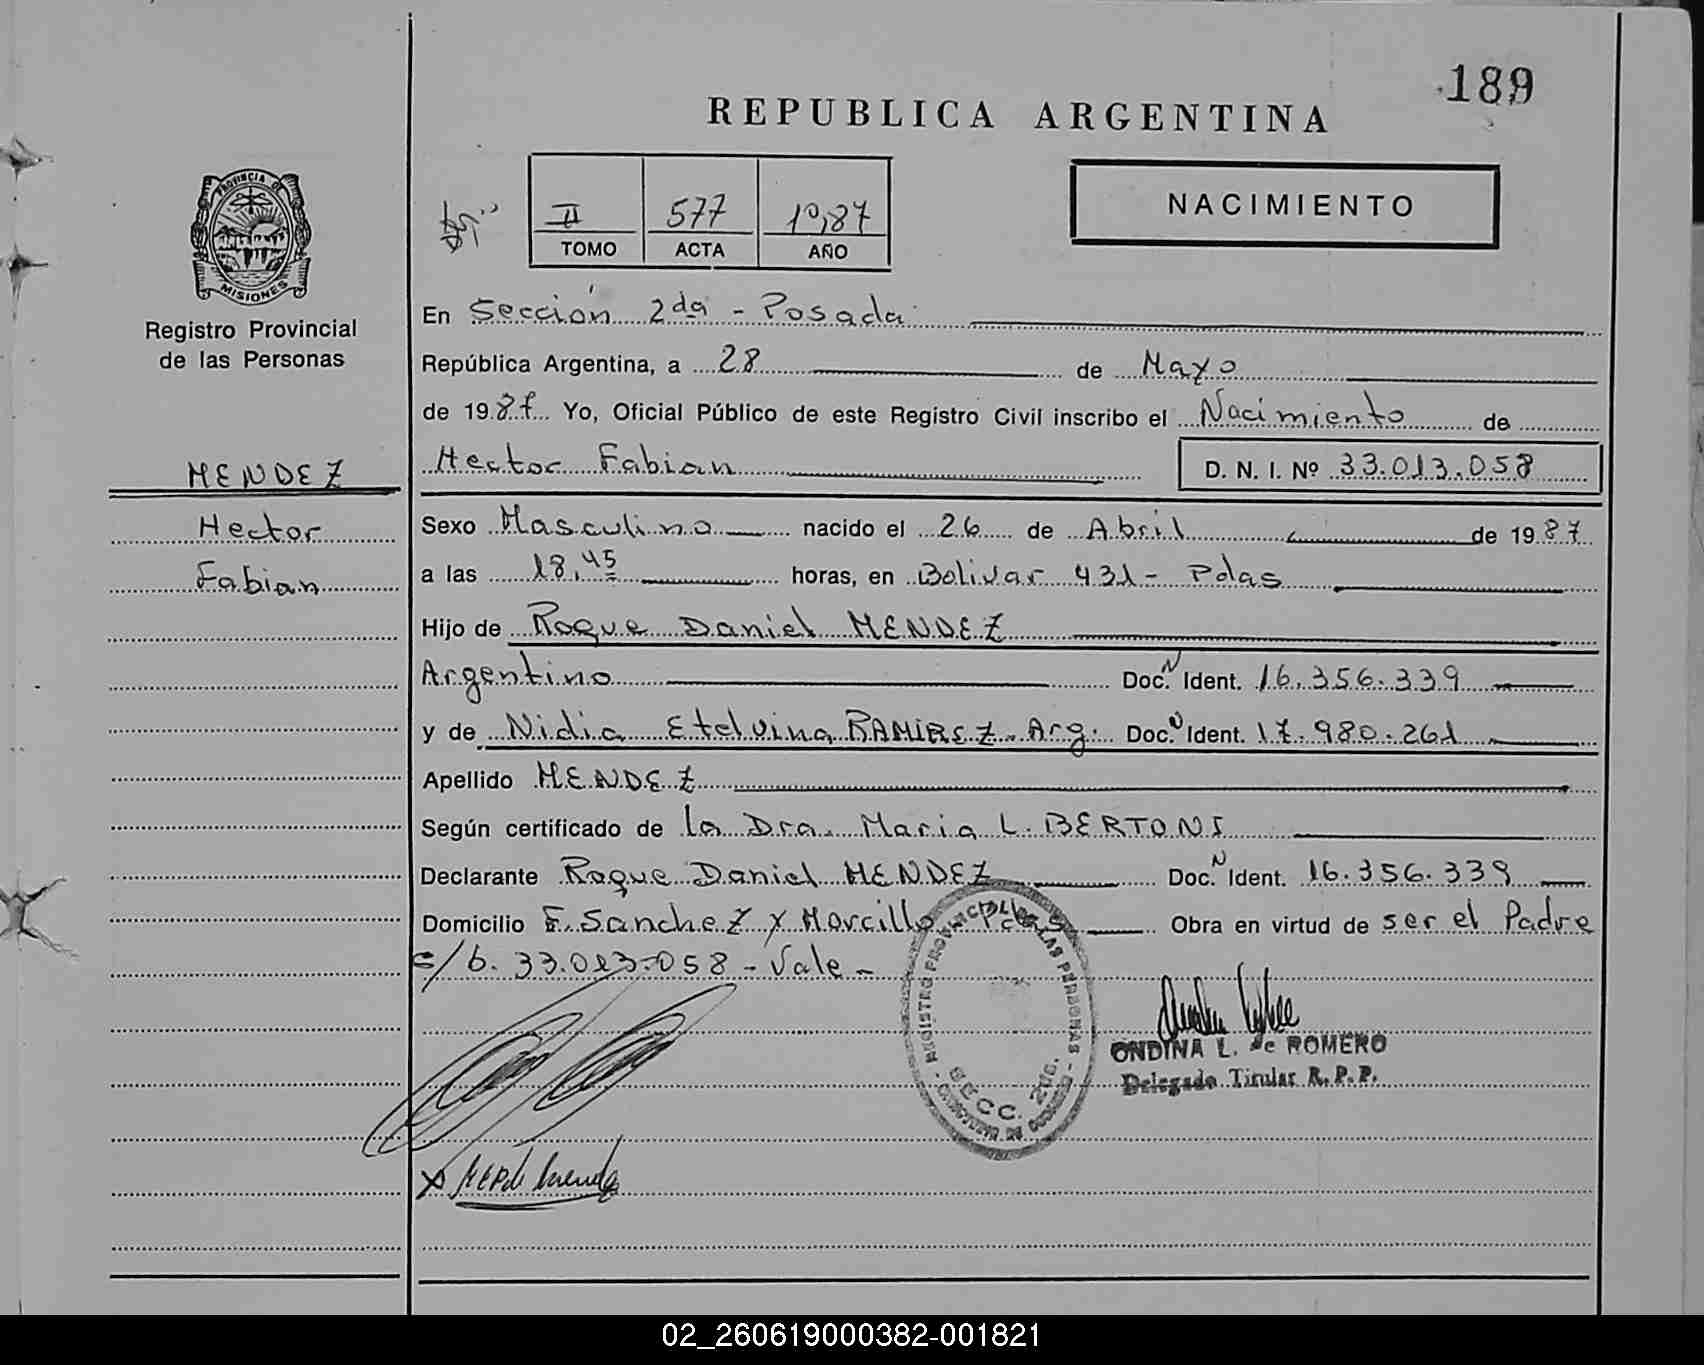 189
REPUBLICA ARGENTINA
PROVINCIA DE
MISIONES
Registro Provincial
de las Personas
II 577 1987
TOMO ACTA AÑO
NACIMIENTO
En Sección 2da - Posada
República Argentina, a 28 de Mayo
de 1987 Yo, Oficial Público de este Registro Civil inscribo el Nacimiento de
Hector Fabian D. N. I. Nº 33.013.058
MENDEZ
Hector
Fabian
Sexo Masculino nacido el 26 de Abril de 1987
a las 18,45 horas, en Bolivar 431 - Pdas
Hijo de Roque Daniel MENDEZ
Argentino Doc. N Ident. 16.356.339
y de Nidia Etelvina RAMIREZ - Arg. Doc. N Ident. 17.980.261
Apellido MENDEZ
Según certificado de la Dra. Maria L. BERTONI
Declarante Roque Daniel MENDEZ Doc. N Ident. 16.356.339
Domicilio F. Sanchez y Morcillo Pdas Obra en virtud de ser el Padre
e/b. 33.013.058 - Vale -
REGISTRO PROVINCIAL DE LAS PERSONAS
SECC. 2da.
ONDINA L. de ROMERO
Delegado Titular R. P. P.
02_260619000382-001821